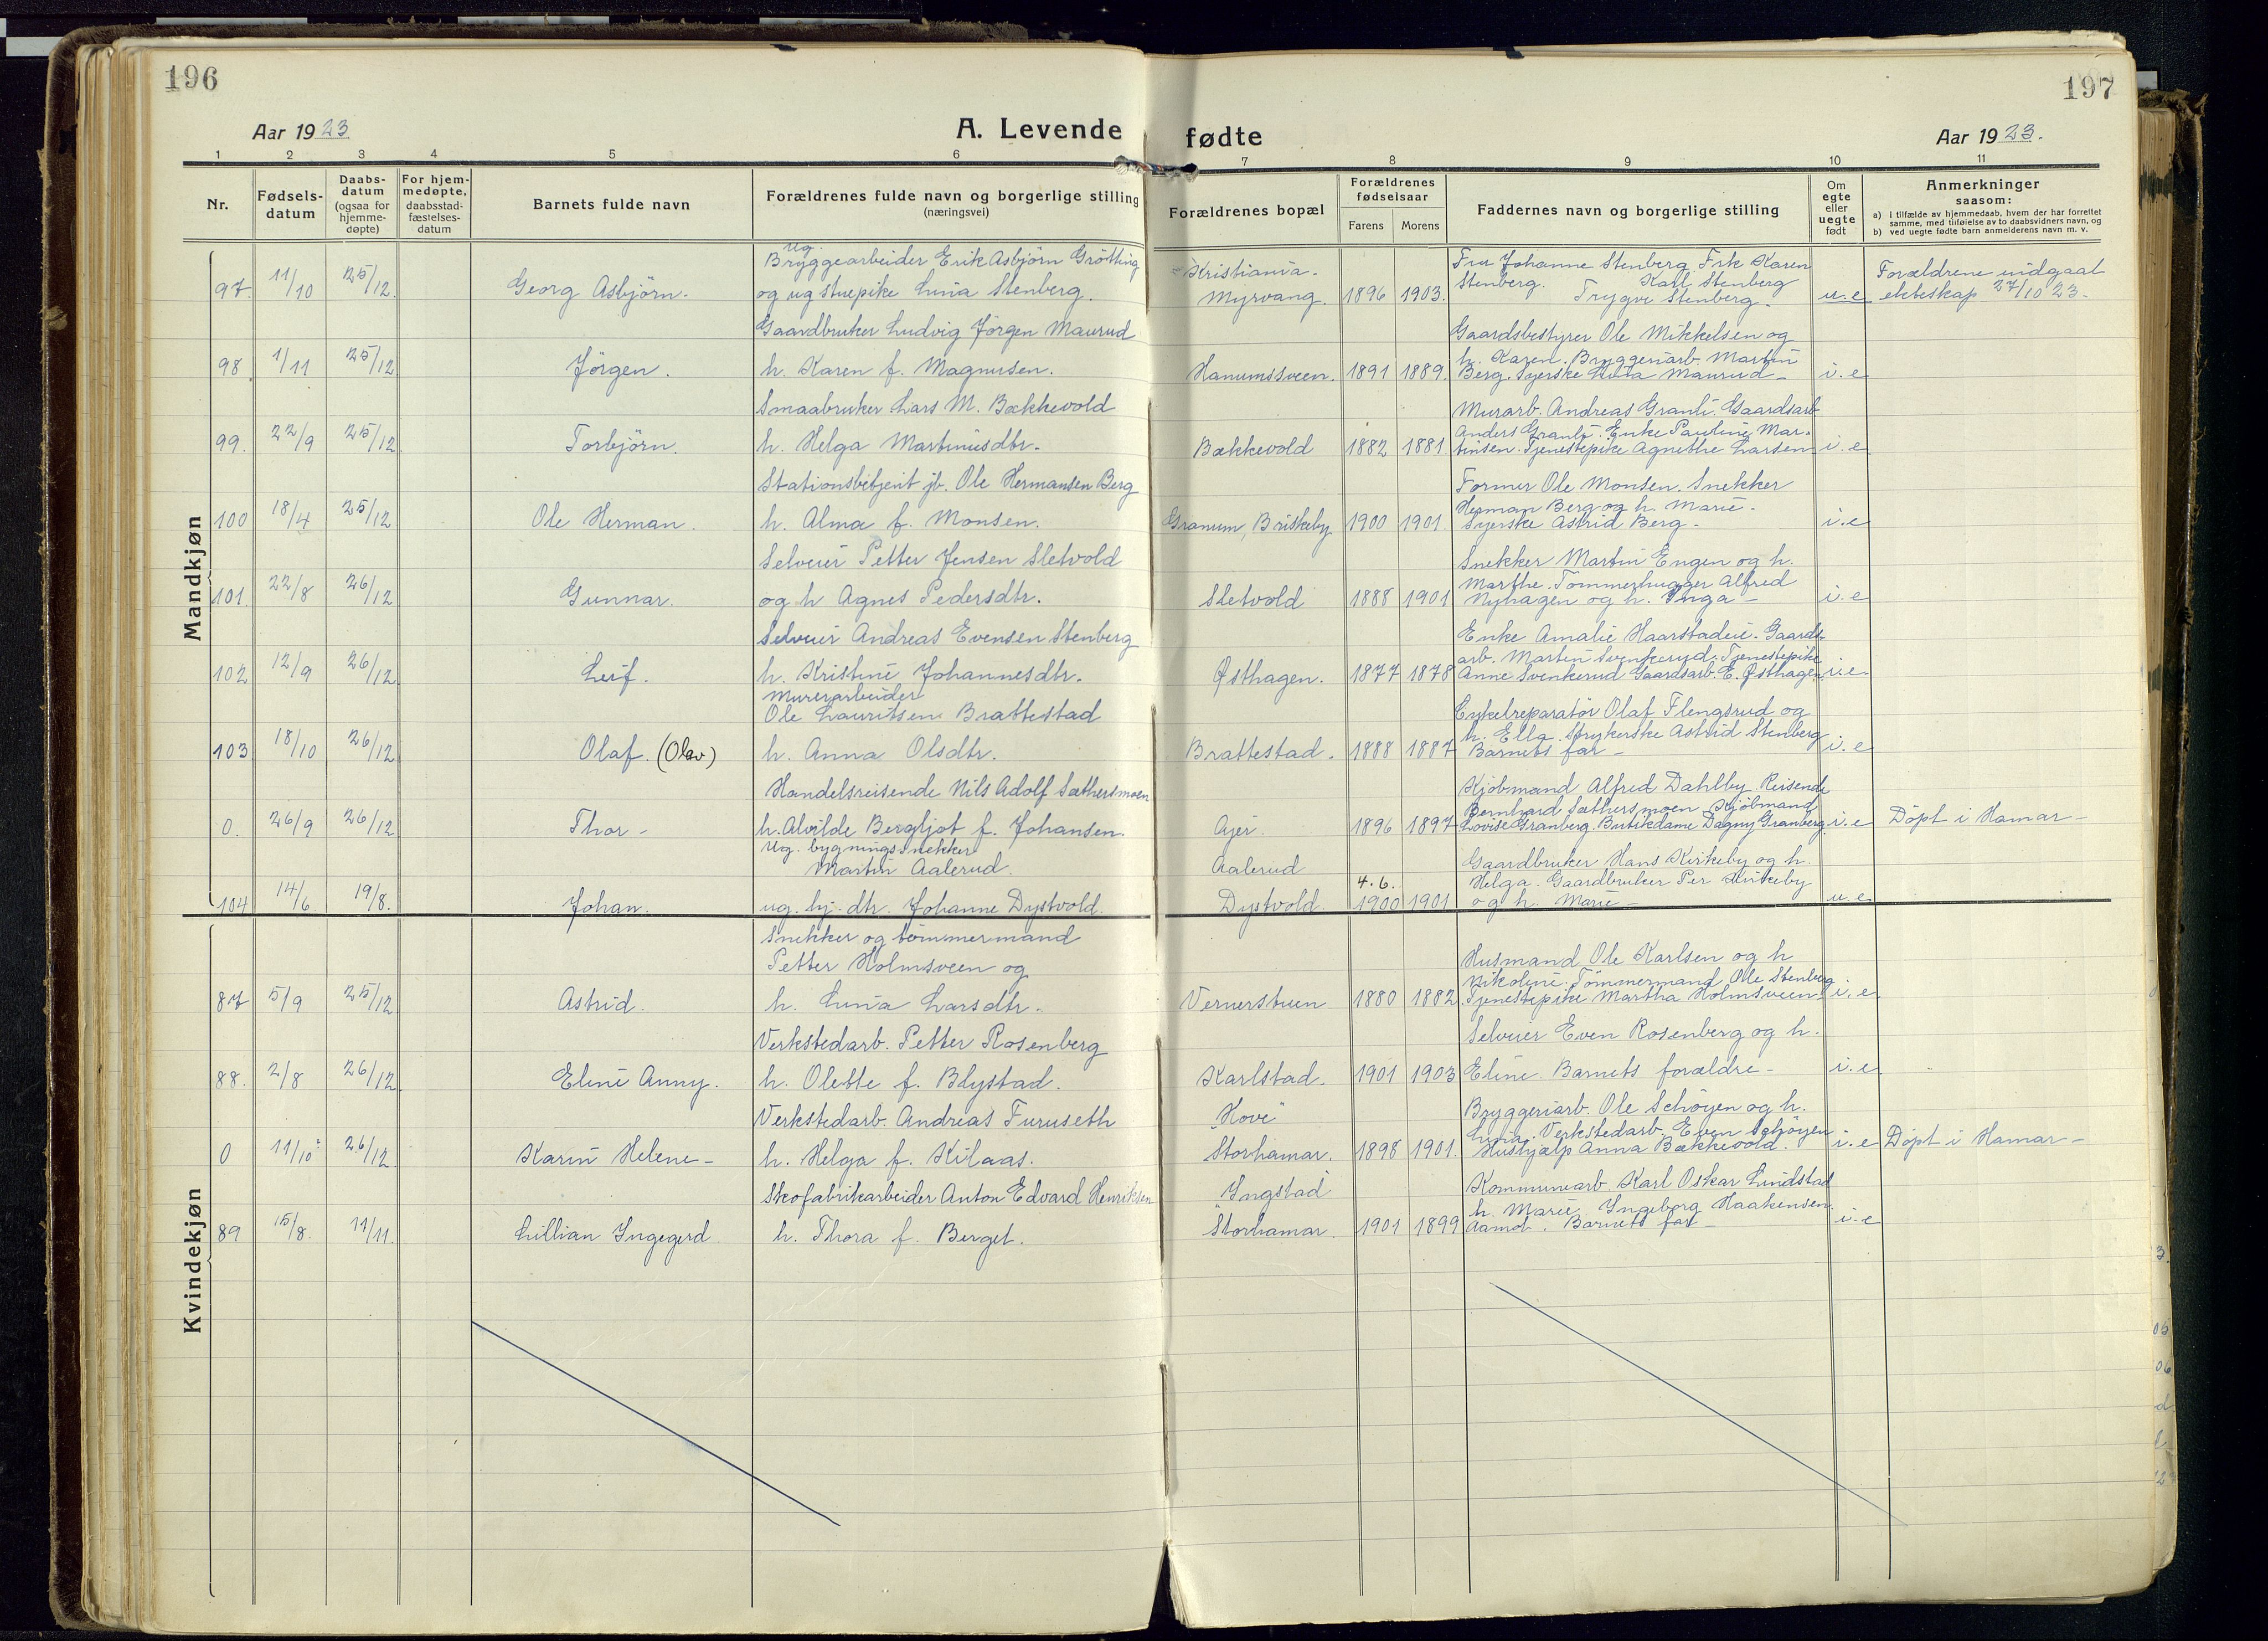 196
197
Aar 1923
A. Levende fødte
Aar 1923.
1 2 3 4 5 6 7 8 9 10 11
Nr.
Fødsels-
datum
Daabs-
datum
(ogsaa for
hjemme-
døpte)
For hjem-
medøpte,
daabsstad-
fæstelses-
datum
Barnets fulde navn
Forældrenes fulde navn og borgerlige stilling
(næringsvei)
Forældrenes bopæl
Forældrenes
fødselsaar
Farens Morens
Faddernes navn og borgerlige stilling
Om
egte
eller
uegte
født
Anmerkninger
saasom:
a) i tilfælde av hjemmedaab, hvem der har forrettet
samme, med tilføielse av to daabsvidners navn, og
b) ved uegte fødte barn anmelderens navn m. v.
Mandkjøn
97. 11/10 25/12. Georg Asbjörn.
Ug.
Bryggearbeider Erik Asbjörn Grötting
og ug stuepike Lina Stenberg.
Kristiania.
Myrvang. 1896 1903.
Fru Johanne Stenberg. Frk Karen
Stenberg. Karl Stenberg
Trygve Stenberg.
u.e
Forældrene indgaat
ekteskap 27/10 23.
98. 1/11 25/12 Jörgen.
Gaardbruker Ludvig Jörgen Maurud
h. Karen f. Magnusen.
Hanumssveen. 1891 1889.
Gaardsbestyrer Ole Mikkelsen og
h. Karen. Bryggeriarb. Martin
Berg. Syerske Huta Maurud
i.e
99. 22/9 25/12 Torbjörn.
Smaabruker Lars M. Bækkevold
h. Helga Martinusdtr.
Bækkevold 1882 1881.
Murarb. Andreas Granli. Gaardsarb
Anders Granli. Enke Pauline Mar-
tinsen. Tjenestepike Agnethe Larsen
i.e
100 18/4 25/12 Ole Herman.
Stationsbetjent jb. Ole Hermansen Berg
h. Alma f. Monsen.
Granum, Briskeby 1900 1901.
Former Ole Monsen. Snekker
Herman Berg og h. Marie.
Syerske Astrid Berg.
i.e
101. 22/8 26/12 Gunnar.
Selveier Petter Jensen Sletvold
og h Agnes Pedersdtr.
Sletvold 1888 1901
Snekker Martin Engen og h.
Marthe. Tömmerhugger Alfred
Nyhagen og h. Inga
i.e
102 12/9 26/12 Leif.
Selveier Andreas Evensen Stenberg
h. Kristine Johannesdtr.
Østhagen. 1877 1878
Enke Amalie Haarstadeie. Gaards-
arb. Martin Svenkerud. Tjenestepike
Anne Svenkerud Gaardsarb. E. Østhagen
i.e.
103 18/10 26/12 Olaf. (Olav)
Murerarbeider
Ole Lauritsen Brattestad
h. Anna Olsdtr.
Brattestad. 1888 1887
Cykelreparatör Olaf Flengsrud og
h. Ella. Strykerske Astrid Stenberg
Barnets far
i.e
0. 26/9 26/12 Thor
Handelsreisende Nils Adolf Sæthersmoen
h. Alvilde Bergljot f. Johansen.
Ajer. 1896 1897
Kjöbmand Alfred Dahlby. Reisende
Bernhard Sæthersmoen. Kjöbmand
Lovise Granberg. Butikdame Dagny Granberg
i.e
Döpt i Hamar
104 14/6 19/8. Johan.
Ug. bygningssnekker
Martin Aalerud.
ug. hj. dtr. Johanne Dystvold.
Aalerud
Dystvold. 4.6. 1900 1901
Gaardbruker Hans Kirkeby og h.
Helga. Gaardbruker Per Kirkeby
og h. Marie
u.e
Kvindekjøn
87 5/9 25/12 Astrid.
Snekker og tömmermand
Petter Holmsveen og
h. Lina Larsdtr.
Vernerstuen 1880 1882.
Husmand Ole Karlsen og h
Nikoline. Tömmermand Ole Stenberg
Tjenestepike Martha Holmsveen.
i.e.
88. 2/8 26/12 Eline Anny.
Verkstedarb. Petter Rosenberg
h. Olette f. Blystad.
Karlstad. 1901 1903
Selveier Even Rosenberg og h.
Eline. Barnets forældre
i.e
0 11/10 26/12. Karin Helene
Verkstedarb. Andreas Furuseth
h. Helga f. Kilaas.
"Kove"
Storhamar. 1898 1901.
Bryggeriarb. Ole Schöyen og h.
Lina. Verkstedarb. Even Schöyen
Hushjælp Anna Bækkevold.
i.e
Döpt i Hamar
89 15/8. 11/11. Lillian Ingegerd
Skofabrikarbeider Anton Edvard Henriksen
h. Thora f. Berget.
Yngstad
Storhamar. 1901 1899
Kommunearb. Karl Oskar Lundstad
h. Marie. Ingeborg Haakensen.
Aamot. Barnets far
i.e